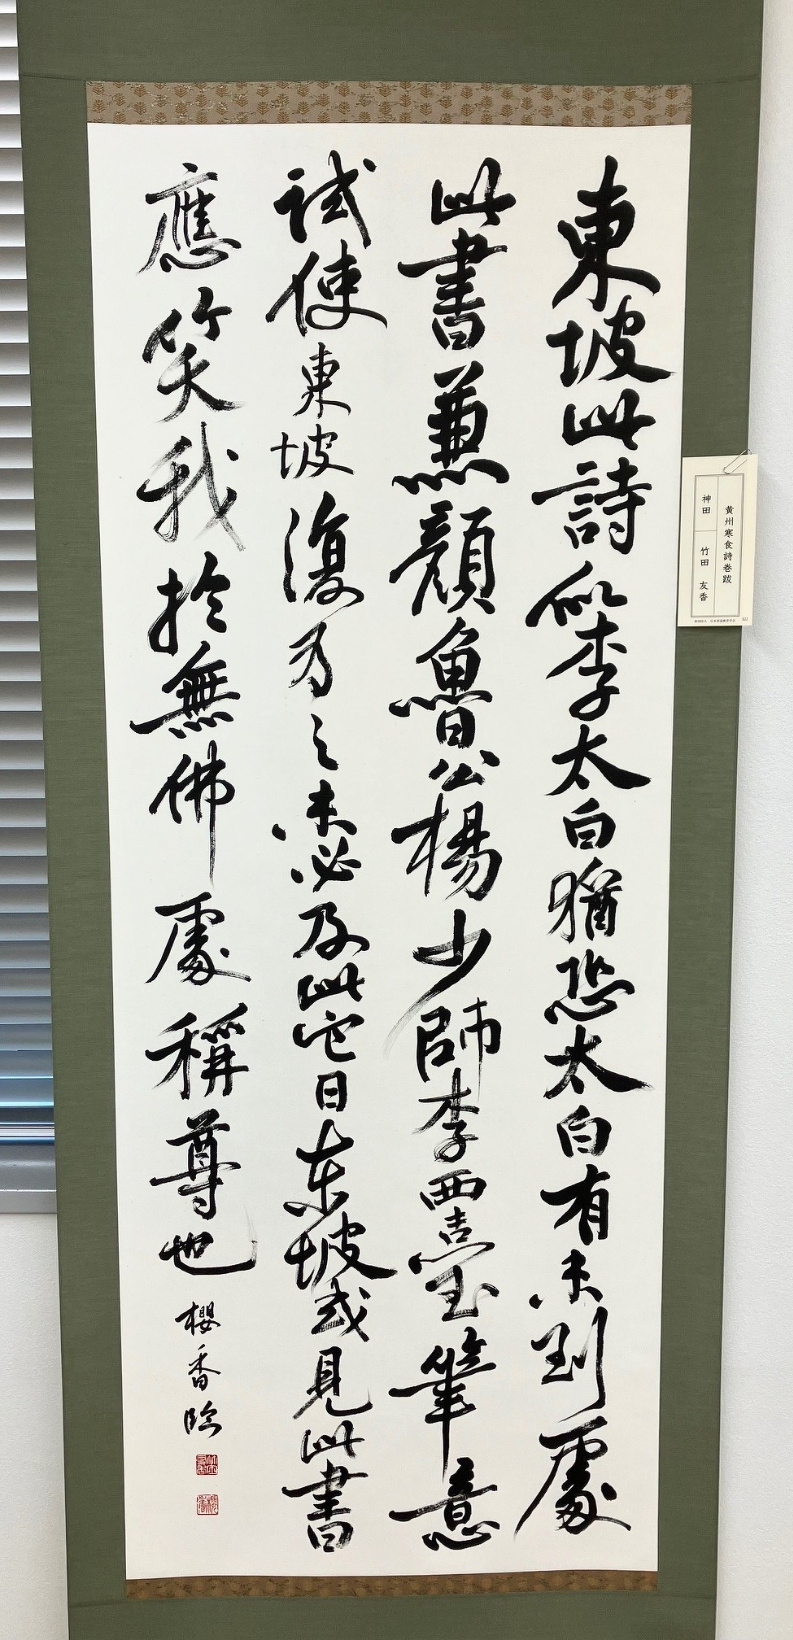 東坡此詩似李太白猶恐太白有未到處
此書兼顔魯公楊少師李西臺筆意
試使東坡復為之未必及此它日東坡或見此書
應笑我於無佛處稱尊也
櫻香臨
黄州寒食詩巻跋
神田 竹田 友香